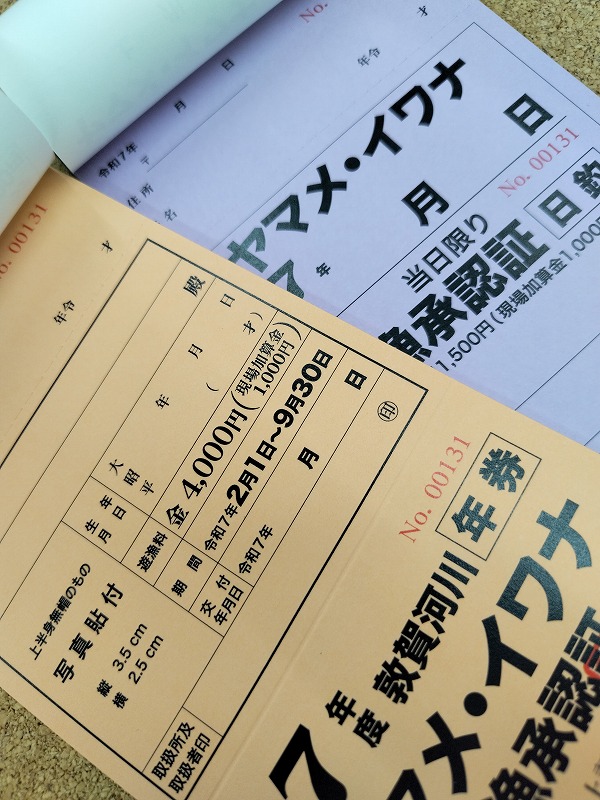 No.
才
年令
日
月
令和7年
〒
住所
名
ヤマメ・イワナ
7年
月
日
No. 00131
当日限り
漁承認証
日釣
1,500円(現場加算金1,000
No. 00131
才
年令
殿
年 月 日
( 才)
大
昭
平
生年
月日
遊漁料
金 4,000円(現場加算金
1,000円)
期間
令和7年2月1日〜9月30日
交付
年月日
令和7年 月 日
㊞
上半身無帽のもの
写真貼付
縦 3.5 cm
横 2.5 cm
取扱所及
取扱者印
No. 00131
年券
7年度 敦賀河川
マメ・イワナ
漁承認証